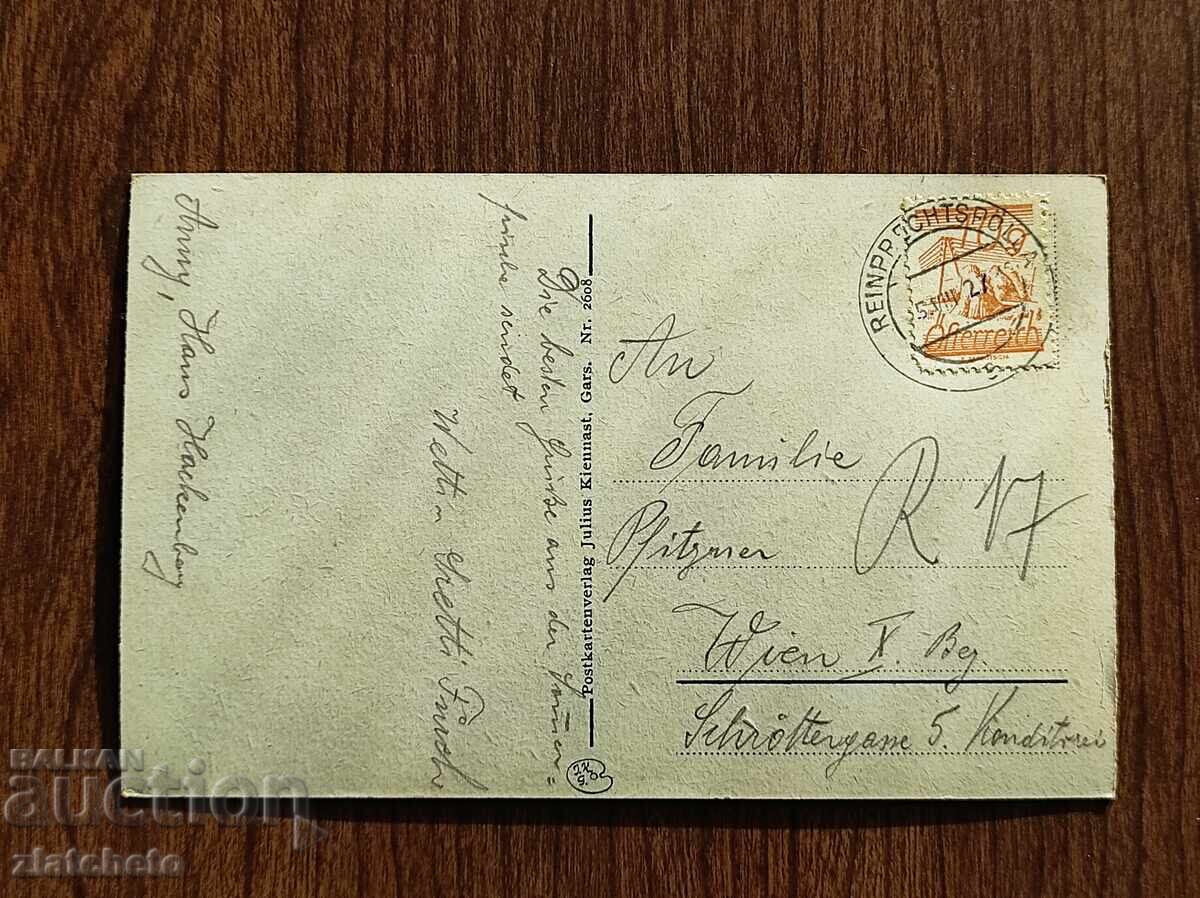 Die besten Grüße aus der Sommer=
frische sendet
Anny, Hans Hackenberg
Postkartenverlag Julius Kiennast, Gars. Nr. 2608
REINPRECHTSPÖLLA
5.VIII.27
10 g
Österreich
An
Familie
Pfitzner
R 17
Wien X. Bez.
Schröttergasse 5. Konditorei
BALKAN
auction
zlatcheto